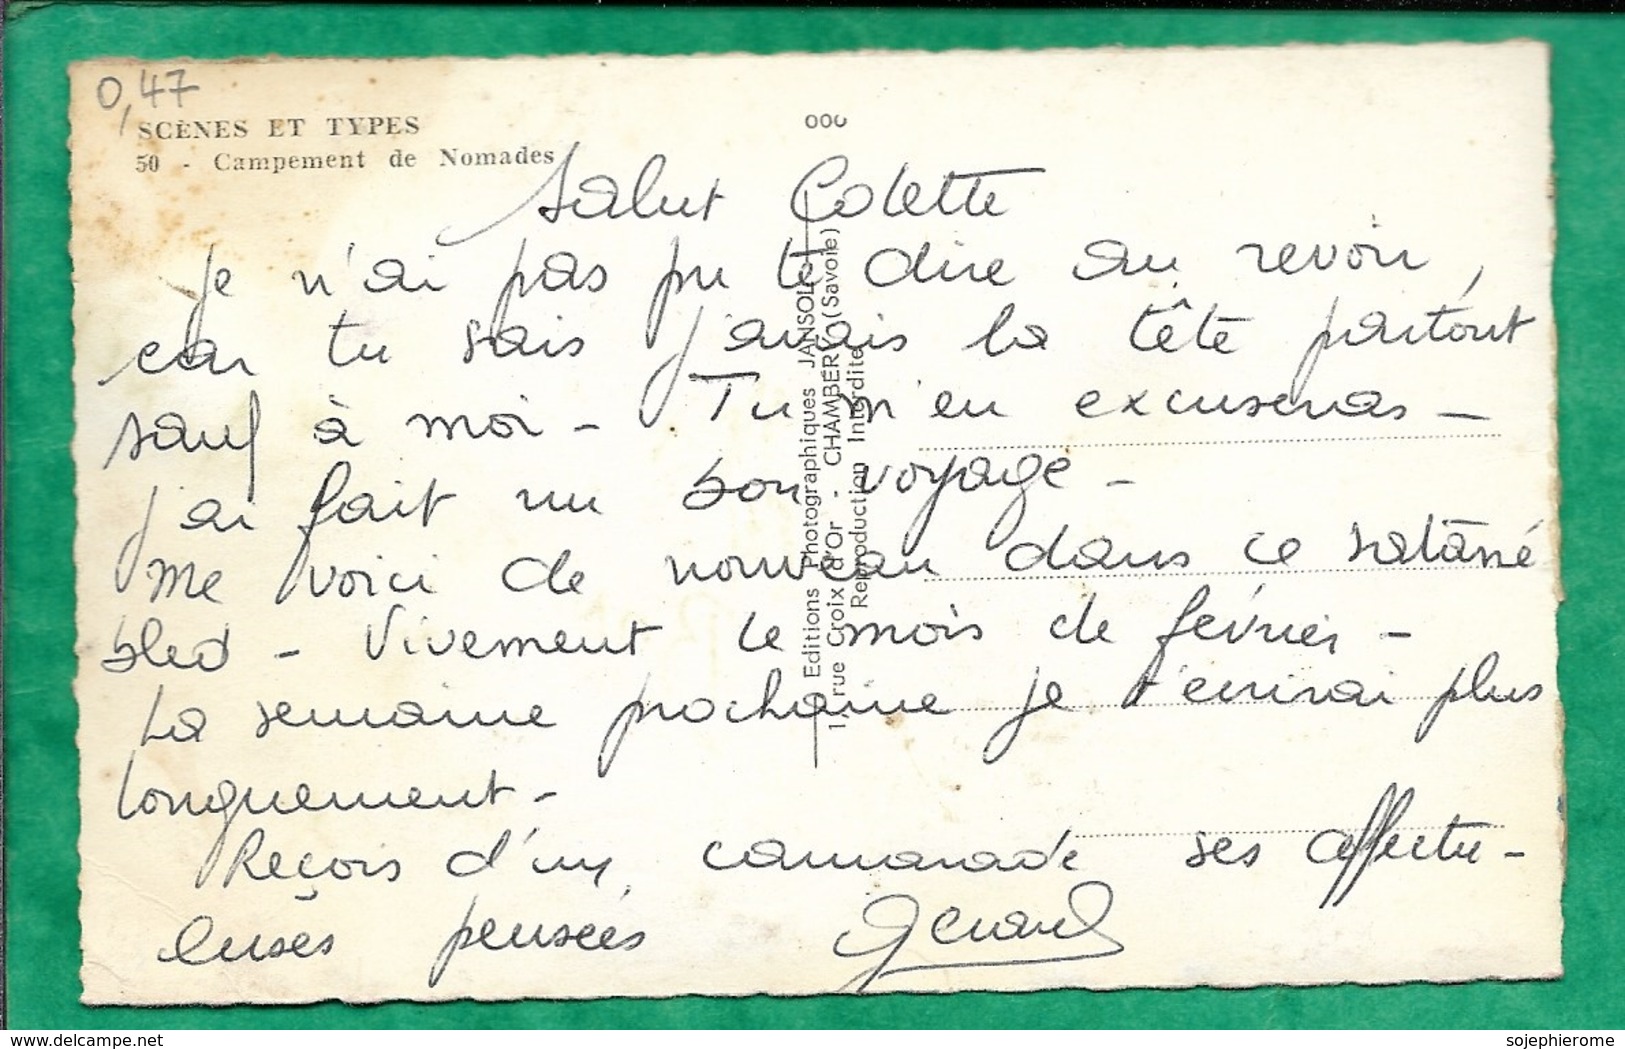 0,47
SCÈNES ET TYPES
50 - Campement de Nomades
Salut Colette
Je n'ai pas pu te dire au revoir,
car tu sais j'avais la tête partout
sauf à moi - Tu m'en excuseras -
J'ai fait un bon voyage -
Me voici de nouveau dans ce satané
bled - Vivement le mois de février -
La semaine prochaine je t'écrirai plus
longuement -
Reçois d'un camarade ses affectu-
euses pensées Gérard
Editions Photographiques JANSOL
1, rue Croix d'Or - CHAMBÉRY (Savoie)
Reproduction Interdite
delcampe.net
sojephierome